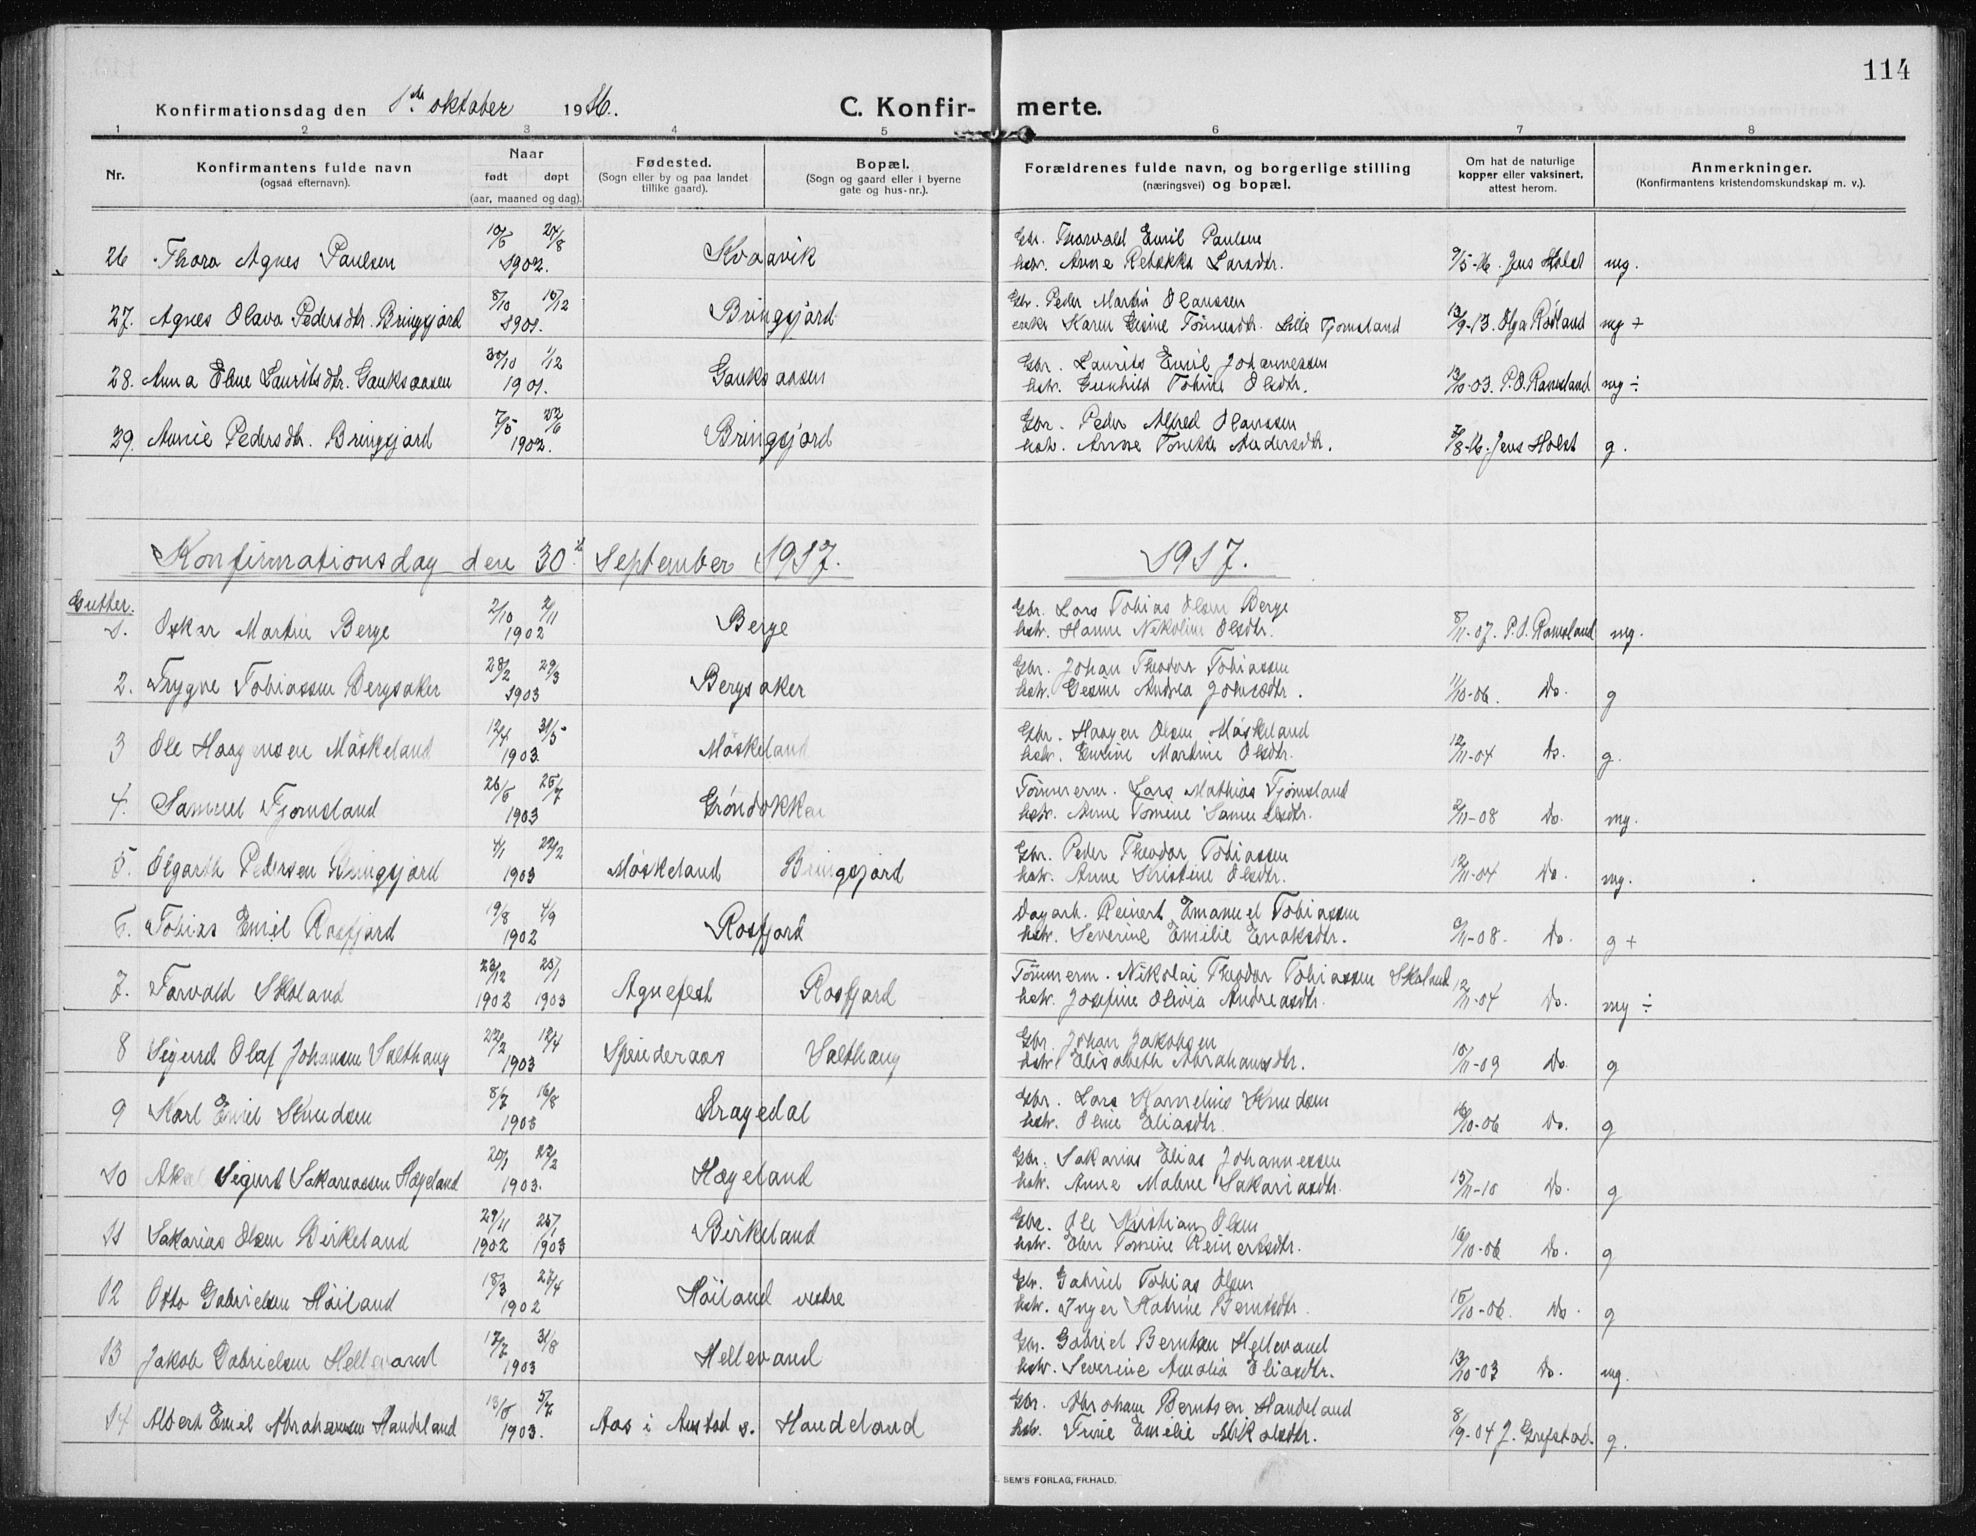 114
Konfirmationsdag den 1ste oktober 1916.
C. Konfir- merte.
1 2 3 4 5 6 7 8
Nr. Konfirmantens fulde navn (ogsaa efternavn). Naar født døpt (aar, maaned og dag). Fødested. (Sogn eller by og paa landet tillike gaard). Bopæl. (Sogn og gaard eller i byerne gate og hus-nr.). Forældrenes fulde navn, og borgerlige stilling (næringsvei) og bopæl. Om hat de naturlige kopper eller vaksinert, attest herom. Anmerkninger. (Konfirmantens kristendomskundskap m. v.).
10/5 27/8 Gbr. Thorvald Emil Paulsen
26 Thora Agnes Paulsen 1902. Kvaavik hstr. Anne Rebekka Larsdtr. 9/5-16. Jens Holst mg.
8/10 15/12 Gbr. Peder Martin Olaussen
27. Agnes Olava Pedersdtr. Bringsjord 1901. Bringsjord enke Karen Gesine Tønnesdtr. Lille Tjomsland 13/9-13. Olga Rødland mg +
30/10 1/12 Gbr. Laurits Emil Johannessen
28. Anna Elene Lauritsdtr. Gauksaasen 1901. Gauksaasen hstr. Gunhild Tobine Olsdtr. 13/10-03. P.O. Ramsland mg ÷
7/5 22/6 Gbr. Peder Alfred Olaussen
29. Annie Pedersdtr. Bringsjord 1902. Bringsjord hstr. Anne Tonette Andersdtr. 7/8-16. Jens Holst g.
Konfirmationsdag den 30te September 1917. 1917.
Gutter.
2/10 2/11 Gbr. Lars Tobias Olsen Berge
1. Oskar Martin Berge 1902 Berge hstr. Hanne Nikoline Olsdtr. 8/11-07. P.O. Ramsland mg.
28/2 29/3 Gbr. Johan Theodor Tobiassen
2. Trygve Tobiassen Bergsaker 1903 Bergsaker hstr. Gesine Andrea Johnsdtr. 11/10-06 Do. g
12/4 31/5 Gbr. Haagen Olsen Møskeland
3 Ole Haagensen Møskeland 1903 Møskeland hstr. Emeline Martine Olsdtr. 12/11-04 do. g.
26/5 25/7 Tømmerm. Lars Mathias Tjømsland
4. Samuel Tjomsland 1903 Grøndokken hstr. Anne Tomine Samuelsdtr. 2/11-08 do. mg.
4/1 22/2 Gbr. Peder Theodor Tobiassen
5. Olgarth Pedersen Bringsjord 1903 Møskeland Bringsjord hstr. Anne Kristine Olsdtr. 12/11-04 Do. mg.
19/8 4/9 Dagarb. Reinert Emanuel Tobiassen
6. Tobias Emil Rosfjord 1902 Rosfjord hstr. Severine Emilie Enoksdtr. 6/11-08. Do. g +
23/12 25/1 Tømmerm. Nikolai Theodor Tobiassen Skoland
7. Torvald Skoland 1902 1903 Agnefest Rosfjord hstr. Josefine Olivia Andreasdtr. 12/11-04 Do. mg ÷
22/2 12/4 Gbr. Johan Jakobsen
8 Sigurd Olaf Johansen Salthaug 1903 Spinderaas Salthaug hstr. Elisabeth Abrahamsdtr. 10/11-09 Do. g
8/7 16/8 Gbr. Lars Kornelius Knudsen
9 Karl Emil Knudsen 1903 Dragedal hstr. Oline Eliasdtr. 16/10-06 Do. g
20/1 22/2 Gbr. Sakarias Elias Johannessen
10 Aksel Sigurd Sakariassen Hægeland 1903. Hægeland hstr. Anne Malene Sakariasdtr. 15/11-10 Do. g
29/11 25/1 Gbr. Ole Kristian Olsen
11 Sakarias Olsen Birkeland 1902 1903 Birkeland hstr. Elen Tomine Reinertsdtr. 16/10-06 Do. g
18/3 27/4 Gbr. Gabriel Tobias Olsen
12 Otto Gabrielsen Høiland 1902 Høiland vestre hstr. Inger Katrine Berntsdtr. 15/10-06. Do. g
17/7 31/8 Gbr. Gabriel Berntsen Hellevand
13 Jakob Gabrielsen Hellevand 1903 Hellevand hstr. Severine Amalia Eliasdtr. 13/10-03 Do. mg.
13/5 5/7 Gbr. Abraham Berntsen Handeland
14 Albert Emil Abrahamsen Handeland 1903. Aas i Austad s. Handeland hstr. Trine Emilie Mikalsdtr. 8/9-04 J. Grefstad. g.
E. SEM'S FORLAG, FR.HALD.